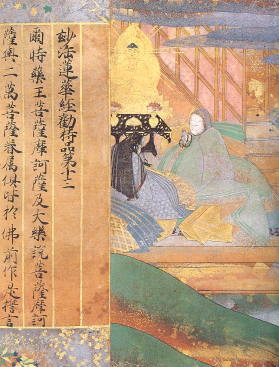 妙法蓮華經勸持品第十三
爾時藥王菩薩摩訶薩及大樂說菩薩摩訶
薩與二萬菩薩眷屬俱皆於佛前作是誓言